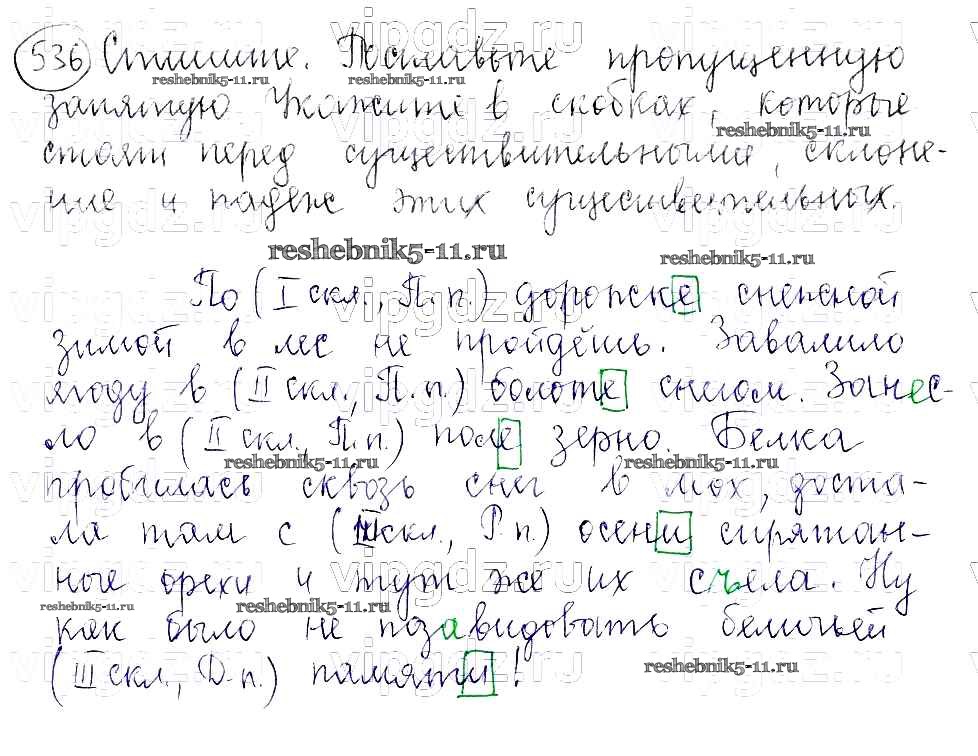 536 Спишите. Поставьте пропущенную
запятую Укажите в скобках, которые
стоят перед существительными, склоне-
ние и падеж этих существительных.
reshebnik5-11.ru
По (I скл., П.п.) дорожке снежной
зимой в лес не пройдёшь. Завалило
ягоду в (II скл., П.п.) болоте снегом. Занес-
ло в (II скл., П.п.) поле зерно. Белка
пробилась сквозь снег в мох, доста-
ла там с (III скл., Р.п.) осени спрятан-
ные орехи и тут же их съела. Ну
как было не позавидовать беличьей
(III скл., Д.п.) памяти!